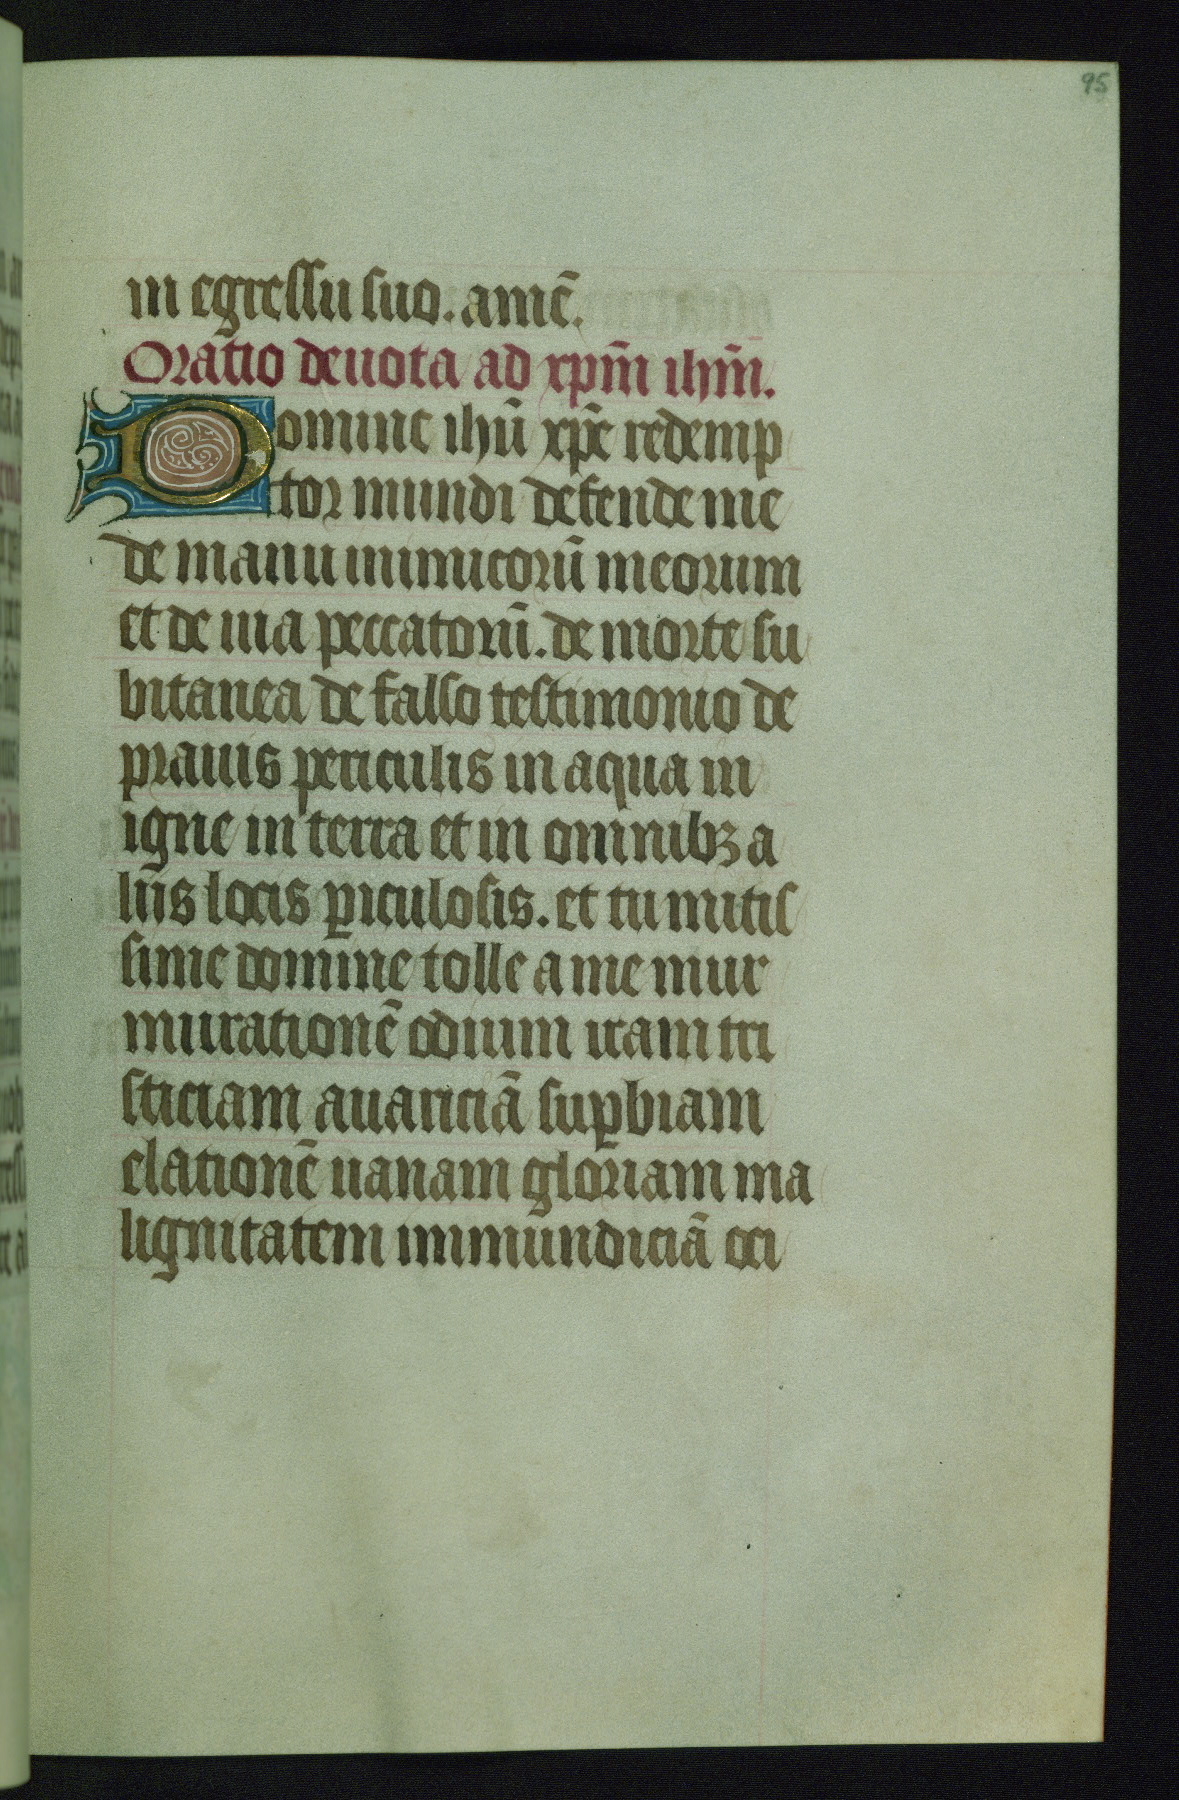 95
in egressu suo. amē.
Oratio deuota ad xpm̄ ihm̄.
Domine ihū xp̄e redemp
tor mundi defende me
de manu inimicorū meorum
et de uia peccatorū. de morte su
bitanea de falso testimonio de
prauis periculis in aqua in
igne in terra et in omnibꝫ a
liis locis ꝑiculosis. et tu mitis
sime domine tolle a me mur
murationē odium iram tri
sticiam auariciā suꝑbiam
elationē uanam gloriam ma
lignitatem immundiciā oci